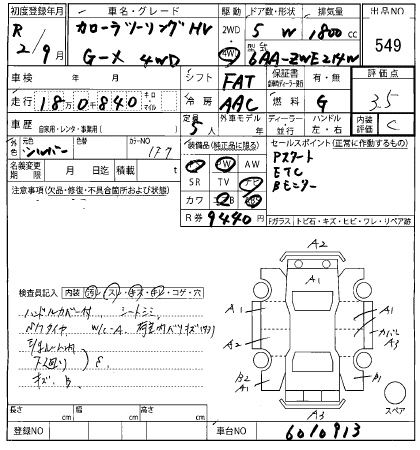 初度登録年月 車名・グレード 駆動 ドア数・形状 排気量 出品NO
R 2/9月 カローラツーリングHV G-X 4WD 2WD・4WD 5 W 1800cc 549
型式 6AA-ZWE214W
車検 年 月 シフト FAT 保証書 有・無 評価点
走行 18万0840 キロ マイル 冷房 AAC 燃料 G 3.5
車歴 自家用・レンタ・事業用( ) 定員 5人 外車モデル 年 ディーラー 並行 ハンドル 左・右 内装評価 C
外色 元色 シルバー 色替 カラーNO 177
装備品(純正品に限る)
セールスポイント(正常に作動するもの)
名義変更期限 月 日迄 積載 t
PS PW AW
SR TV ナビ
カワ
Pスタート
ETC
Bモニター
R券 9440円
注意事項(欠品・修復・不具合箇所および状態)
Fガラス トビ石・キズ・ヒビ・ワレ・リペア跡
検査員記入 内装 汚レ・スレ・キズ・キレ・コゲ・穴
ハンドルカバー付 シートシミ
W/C-A
下廻り
キズ B
A2
A1
A1 A1
A2 カバー A3
B2 A1 B1
A3
スペア
長さ cm 幅 cm 高さ cm
登録NO 車台NO 6010913